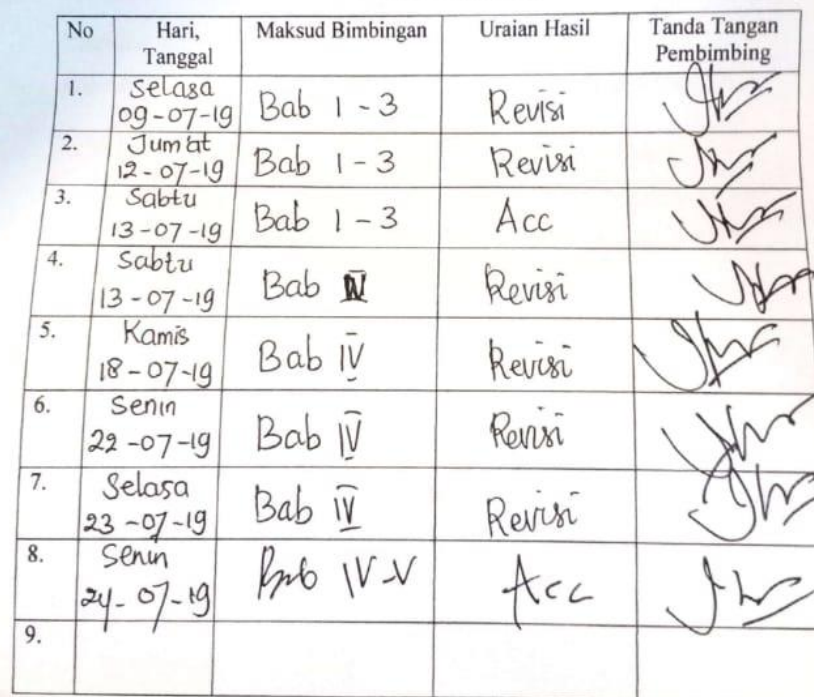 No Hari, Maksud Bimbingan Uraian Hasil Tanda Tangan
Tanggal Pembimbing
1. Selasa
09-07-19 Bab 1-3 Revisi
2. Jum'at
12-07-19 Bab 1-3 Revisi
3. Sabtu
13-07-19 Bab 1-3 Acc
4. Sabtu
13-07-19 Bab IV Revisi
5. Kamis
18-07-19 Bab IV Revisi
6. Senin
22-07-19 Bab IV Revisi
7. Selasa
23-07-19 Bab IV Revisi
8. Senin
24-07-19 Bab IV-V Acc
9.